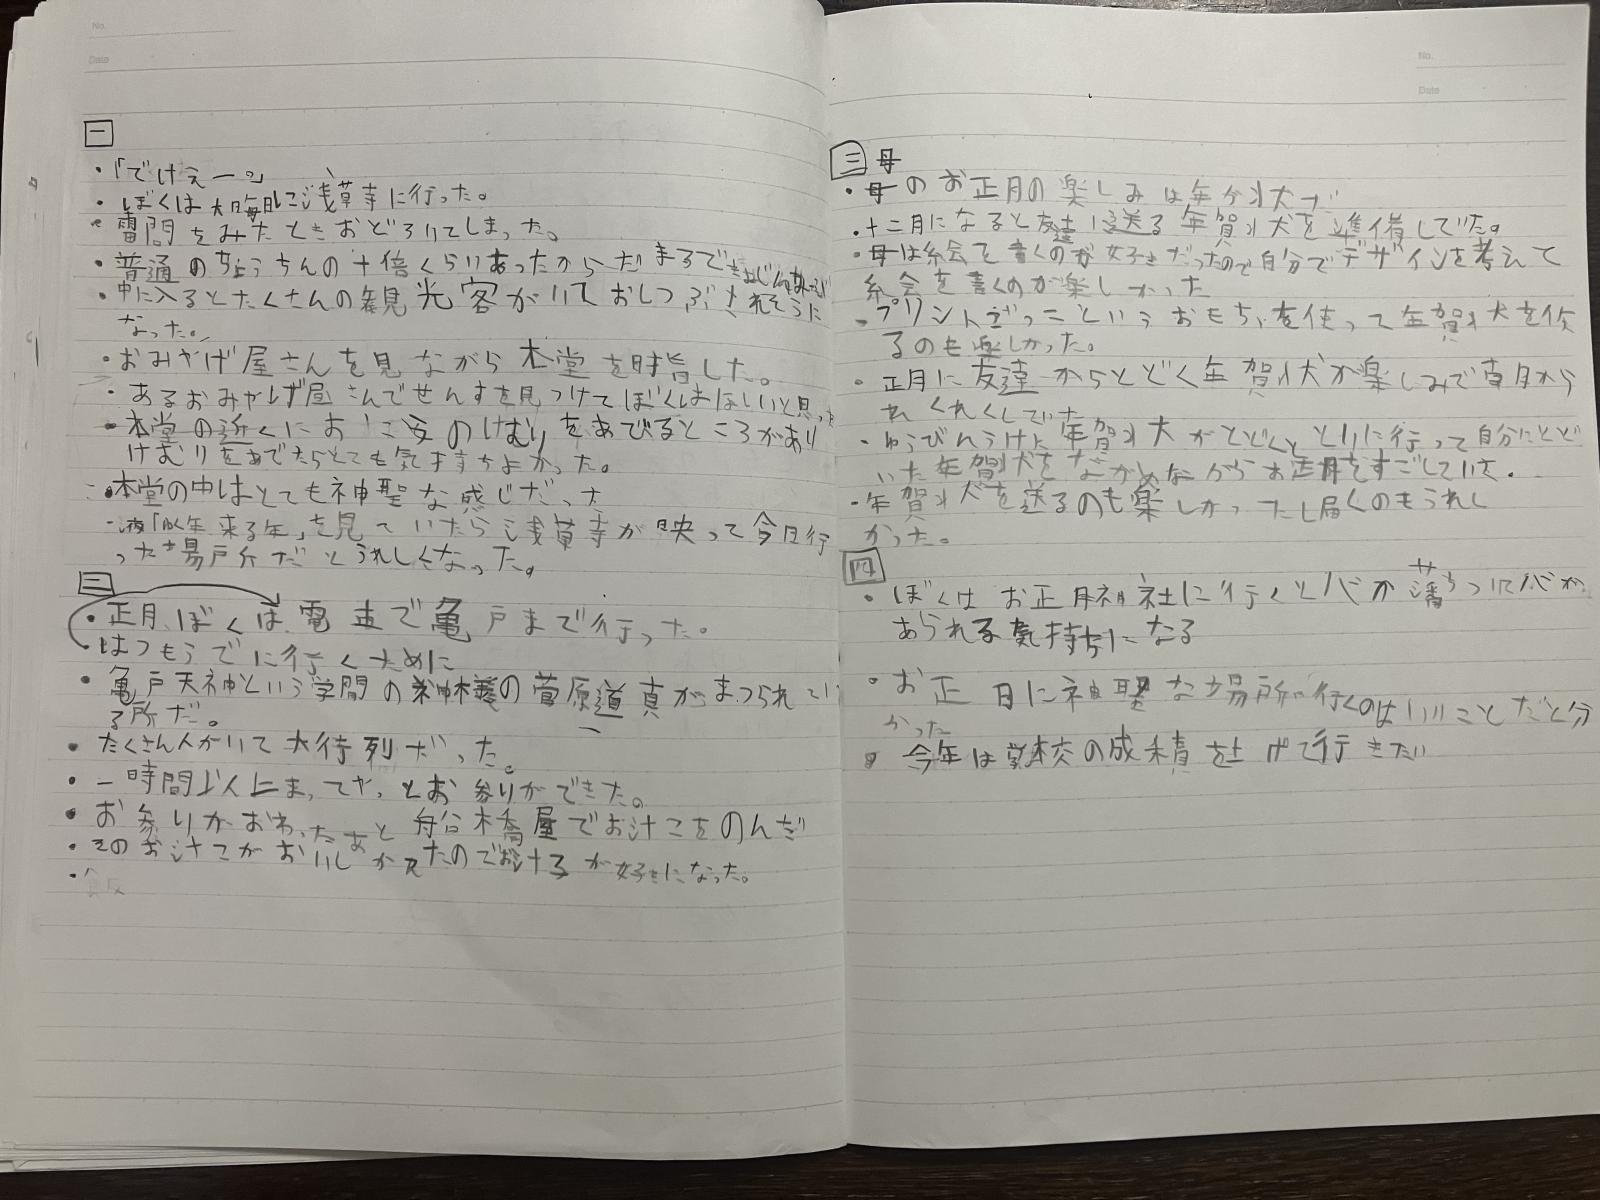 No.
Date
一
・「でけえー。」
・ぼくは大晦日に浅草寺に行った。
・雷門をみたときおどろいてしまった。
・普通のちょうちんの十倍くらいあったからだ まるで
・中に入るとたくさんの観光客がいておしつぶされそうに
なった。
・おみやげ屋さんを見ながら本堂を目指した。
・あるおみやげ屋さんでせんすを見つけてぼくはほしいと思った
・本堂の近くにお のけむりをあびるところがあり
けむりをあびたらとても気持ちよかった。
・本堂の中はとても神聖な感じだった
・夜「ゆく年来る年」を見ていたら浅草寺が映って今日行
った場所だとうれしくなった。
二
・正月、ぼくは電車で亀戸まで行った。
はつもうでに行くために
・亀戸天神という学問の神様の菅原道真がまつられてい
る所だ。
・たくさん人がいて大行列だった。
・二時間以上まってやっとお参りができた。
・お参りがおわったあと船橋屋でお汁こをのんだ
・そのお汁こがおいしかったのでお汁こが好きになった。
・飯
No.
Date
三 母
・母のお正月の楽しみは年賀状だ
・十二月になると友達に送る年賀状を準備していた。
・母は絵を書くのが好きだったので自分でデザインを考えて
絵を書くのが楽しかった
・プリントごっこというおもちゃを使って年賀状を作
るのも楽しかった。
・正月に友達からとどく年賀状が楽しみで
・ゆうびんうけに年賀状がとどくととりに行って自分にとど
いた年賀状をながめながらお正月をすごしていた.
・年賀状を送るのも楽しかったし届くのもうれし
かった。
四
・ぼくはお正月神社に行くと心が落ちついて心が
あらわれる気持ちになる
・お正月に神聖な場所に行くのはいいことだと分
かった
・今年は学校の成積を上げて行きたい